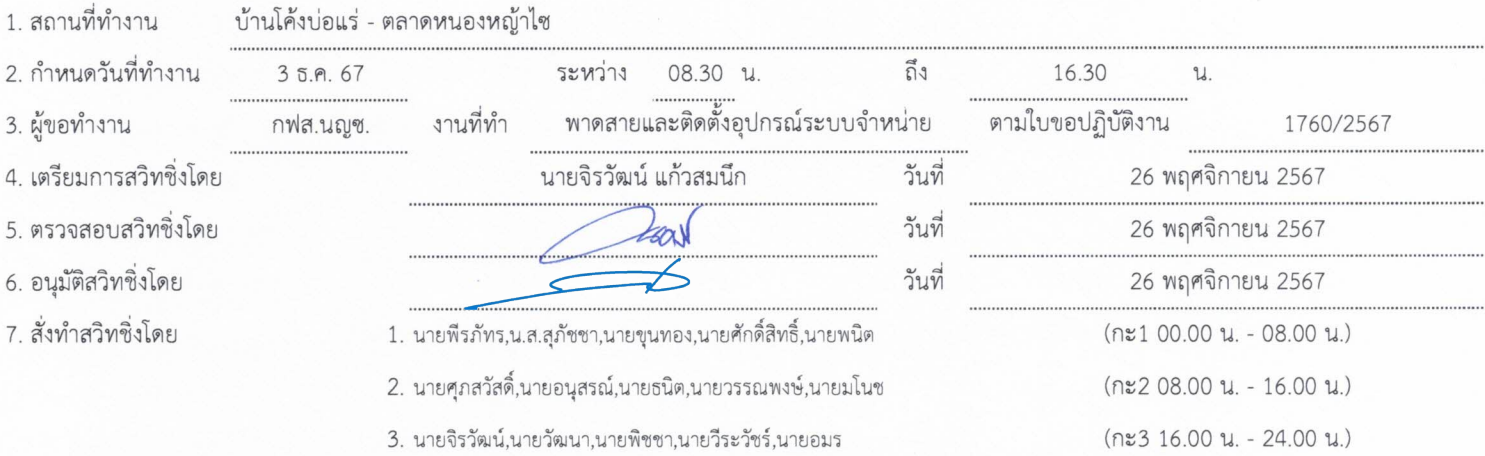 1. สถานที่ทำงาน บ้านโค้งบ่อแร่ - ตลาดหนองหญ้าไซ
2. กำหนดวันที่ทำงาน 3 ธ.ค. 67 ระหว่าง 08.30 น. ถึง 16.30 น.
3. ผู้ขอทำงาน กฟส.นญซ. งานที่ทำ พาดสายและติดตั้งอุปกรณ์ระบบจำหน่าย ตามใบขอปฏิบัติงาน 1760/2567
4. เตรียมการสวิทชิ่งโดย นายจิรวัฒน์ แก้วสมนึก วันที่ 26 พฤศจิกายน 2567
5. ตรวจสอบสวิทชิ่งโดย วันที่ 26 พฤศจิกายน 2567
6. อนุมัติสวิทชิ่งโดย วันที่ 26 พฤศจิกายน 2567
7. สั่งทำสวิทชิ่งโดย 1. นายพีรภัทร,น.ส.สุภัชชา,นายขุนทอง,นายศักดิ์สิทธิ์,นายพนิต (กะ1 00.00 น. - 08.00 น.)
2. นายศุภสวัสดิ์,นายอนุสรณ์,นายธนิต,นายวรรณพงษ์,นายมโนช (กะ2 08.00 น. - 16.00 น.)
3. นายจิรวัฒน์,นายวัฒนา,นายพิชชา,นายวีระวัชร์,นายอมร (กะ3 16.00 น. - 24.00 น.)